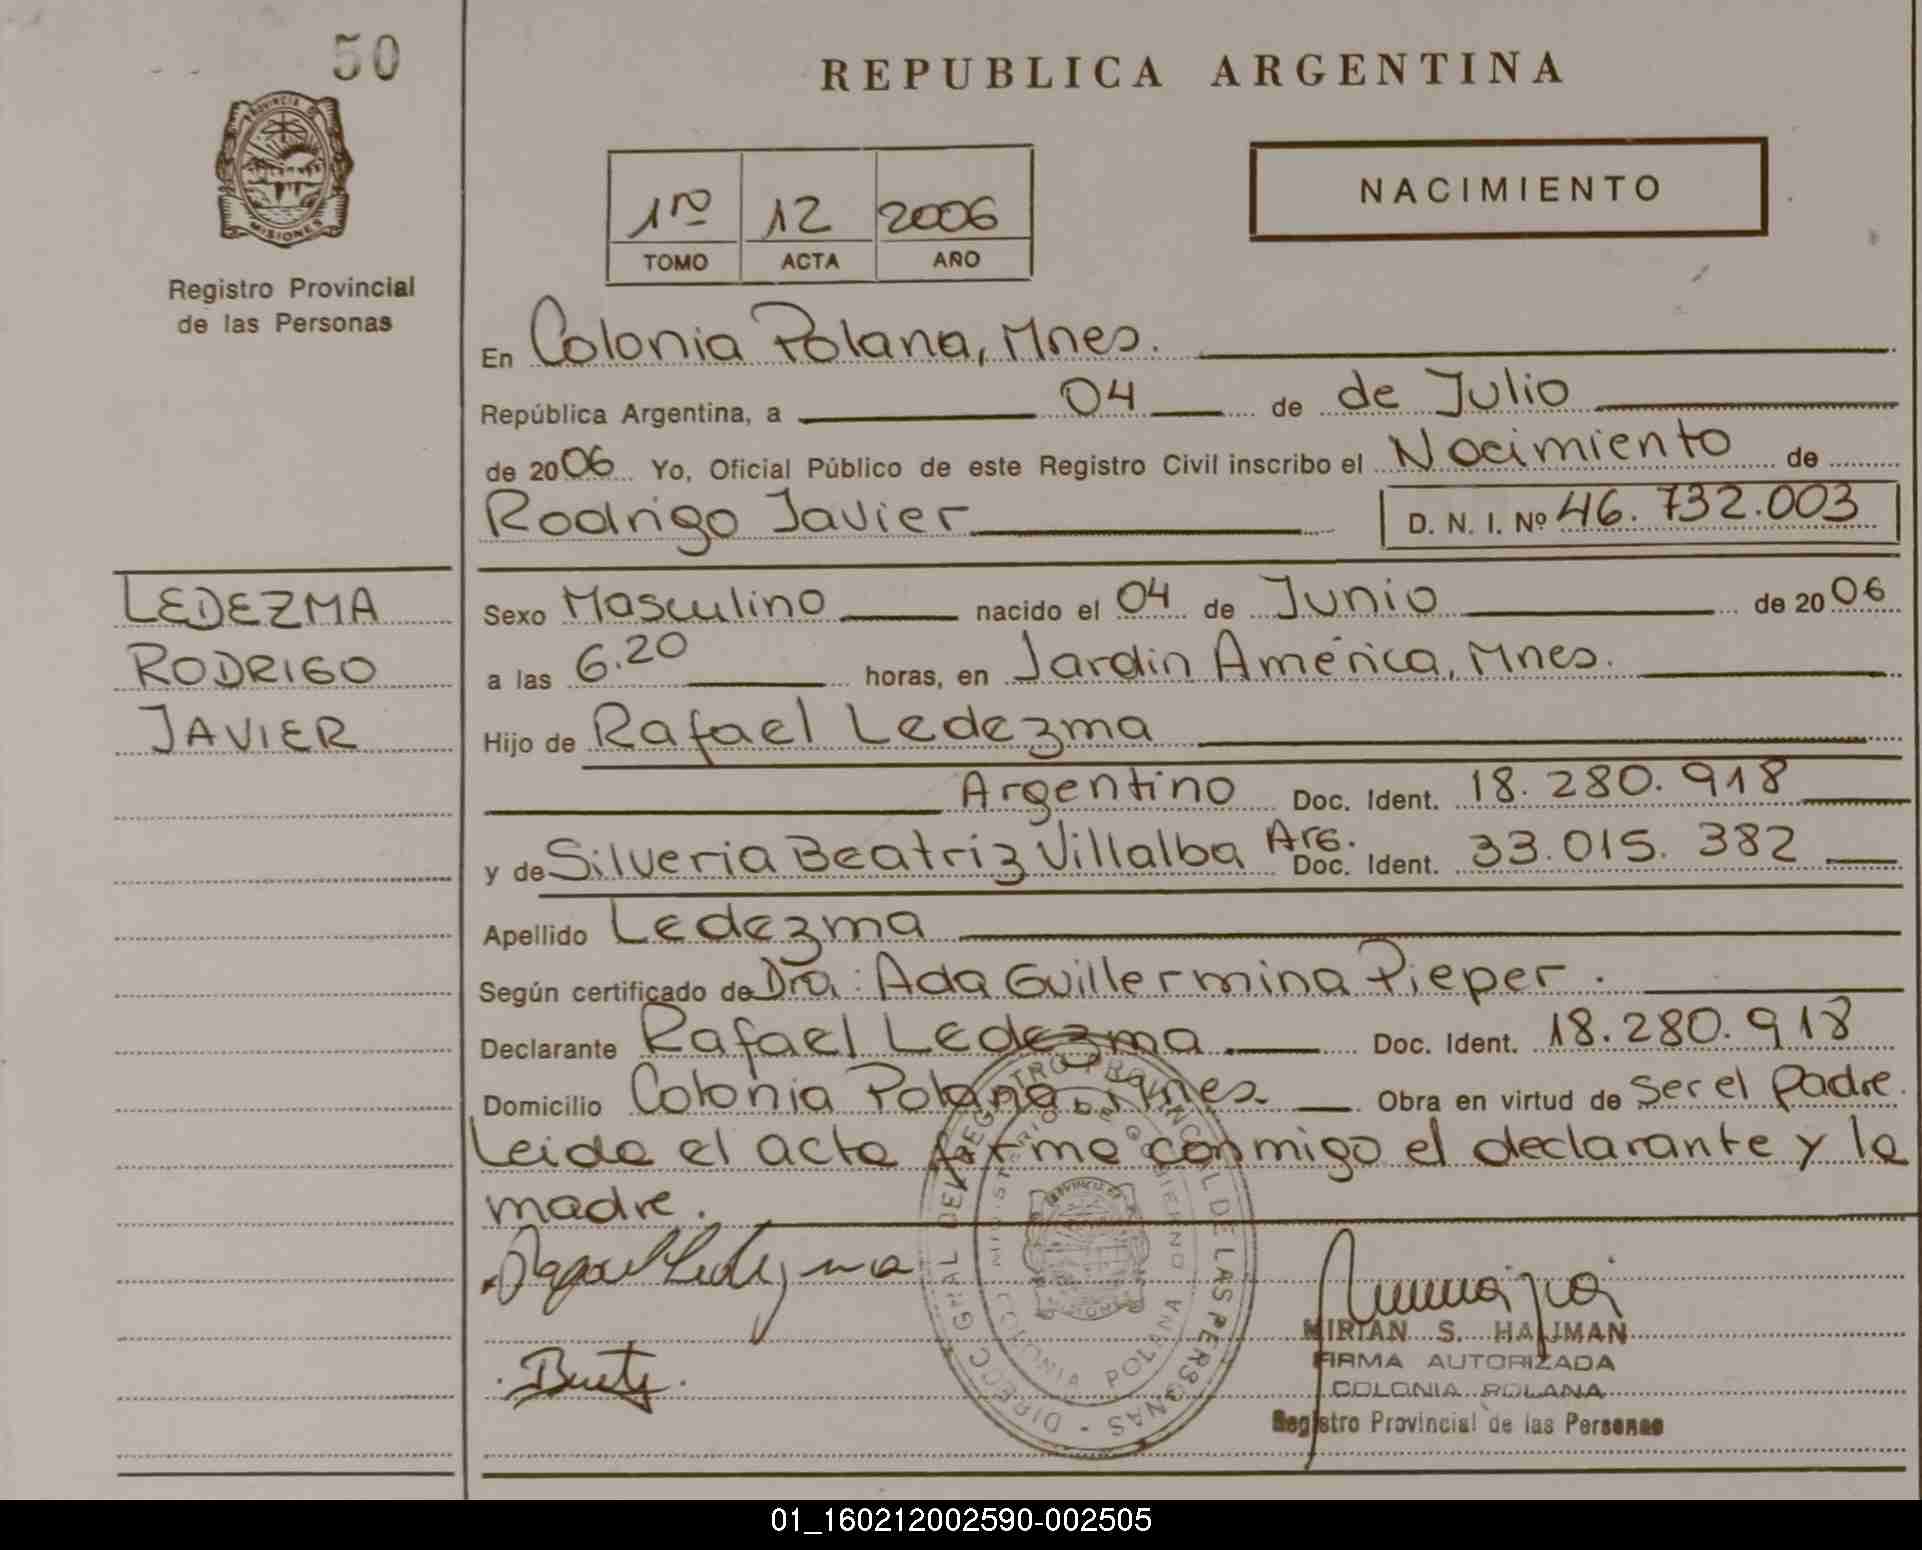 50
PROVINCIA DE
MISIONES
Registro Provincial
de las Personas
LEDEZMA
RODRIGO
JAVIER
REPUBLICA ARGENTINA
1ro 12 2006
TOMO ACTA AÑO
NACIMIENTO
En Colonia Polana, Mnes.
República Argentina, a 04 de de Julio
de 2006 Yo, Oficial Público de este Registro Civil inscribo el Nacimiento de
Rodrigo Javier D. N. I. Nº 46.732.003
Sexo Masculino nacido el 04 de Junio de 2006
a las 6.20 horas, en Jardin América, Mnes.
Hijo de Rafael Ledezma
Argentino Doc. Ident. 18.280.918
y de Silveria Beatriz Villalba Arg. Doc. Ident. 33.015.382
Apellido Ledezma
Según certificado de Dra: Ada Guillermina Pieper.
Declarante Rafael Ledezma Doc. Ident. 18.280.918
Domicilio Colonia Polana, Mnes Obra en virtud de Ser el Padre.
Leida el acta firma conmigo el declarante y la
madre.
Rafael Ledezma
DIRECC GRAL DEL REGISTRO PROVINCIAL DE LAS PERSONAS
MINISTERIO DE GOBIERNO
COLONIA POLANA
MIRIAN S. HAUMAN
FIRMA AUTORIZADA
COLONIA POLANA
Registro Provincial de las Personas
01_160212002590-002505